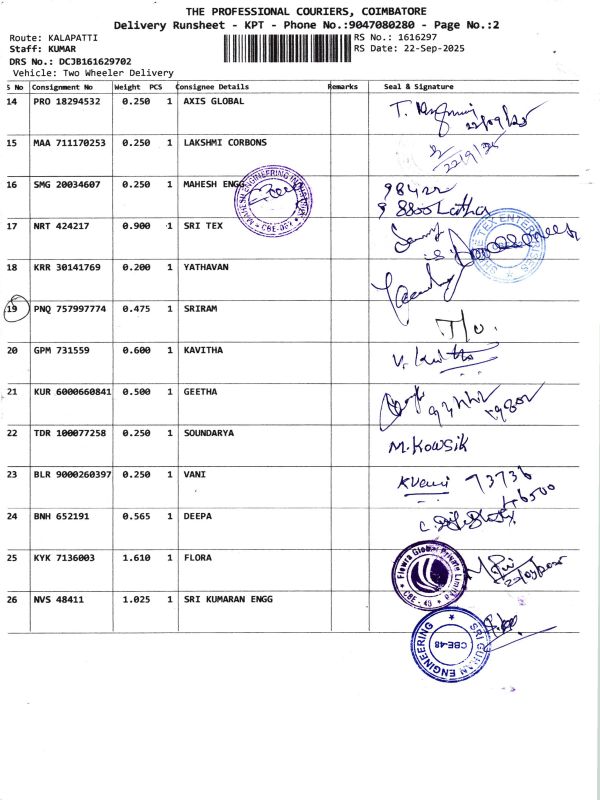 THE PROFESSIONAL COURIERS, COIMBATORE
Delivery Runsheet - KPT - Phone No.:9047080280 - Page No.:2
Route: KALAPATTI
RS No.: 1616297
Staff: KUMAR
RS Date: 22-Sep-2025
DRS No.: DCJB161629702
Vehicle: Two Wheeler Delivery
S No Consignment No Weight PCS Consignee Details Remarks Seal & Signature
14 PRO 18294532 0.250 1 AXIS GLOBAL
22/09/25
15 MAA 711170253 0.250 1 LAKSHMI CORBONS
22/9/25
16 SMG 20034607 0.250 1 MAHESH ENGG
MAHESH ENGINEERING INDUSTRIES
CBE-
98422
8800 Latha
17 NRT 424217 0.900 1 SRI TEX
TEX ENTERPRISES
18 KRR 30141769 0.200 1 YATHAVAN
19 PNQ 757997774 0.475 1 SRIRAM
T/o.
20 GPM 731559 0.600 1 KAVITHA
V. Kavitha
21 KUR 6000660841 0.500 1 GEETHA
22 TDR 100077258 0.250 1 SOUNDARYA
M. Kowsik
23 BLR 9000260397 0.250 1 VANI
K Vani 73736
46500
24 BNH 652191 0.565 1 DEEPA
25 KYK 7136003 1.610 1 FLORA
Flowra Global Private Limited
CBE - 48
26 NVS 48411 1.025 1 SRI KUMARAN ENGG
SRI GUHAN ENGINEERING
CBE-48